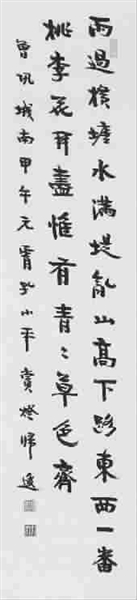 雨過橫塘水滿堤亂山高下路東西一番
桃李花開盡惟有青〻草色齊
曾巩城南甲午元宵於小平賞燈歸逸